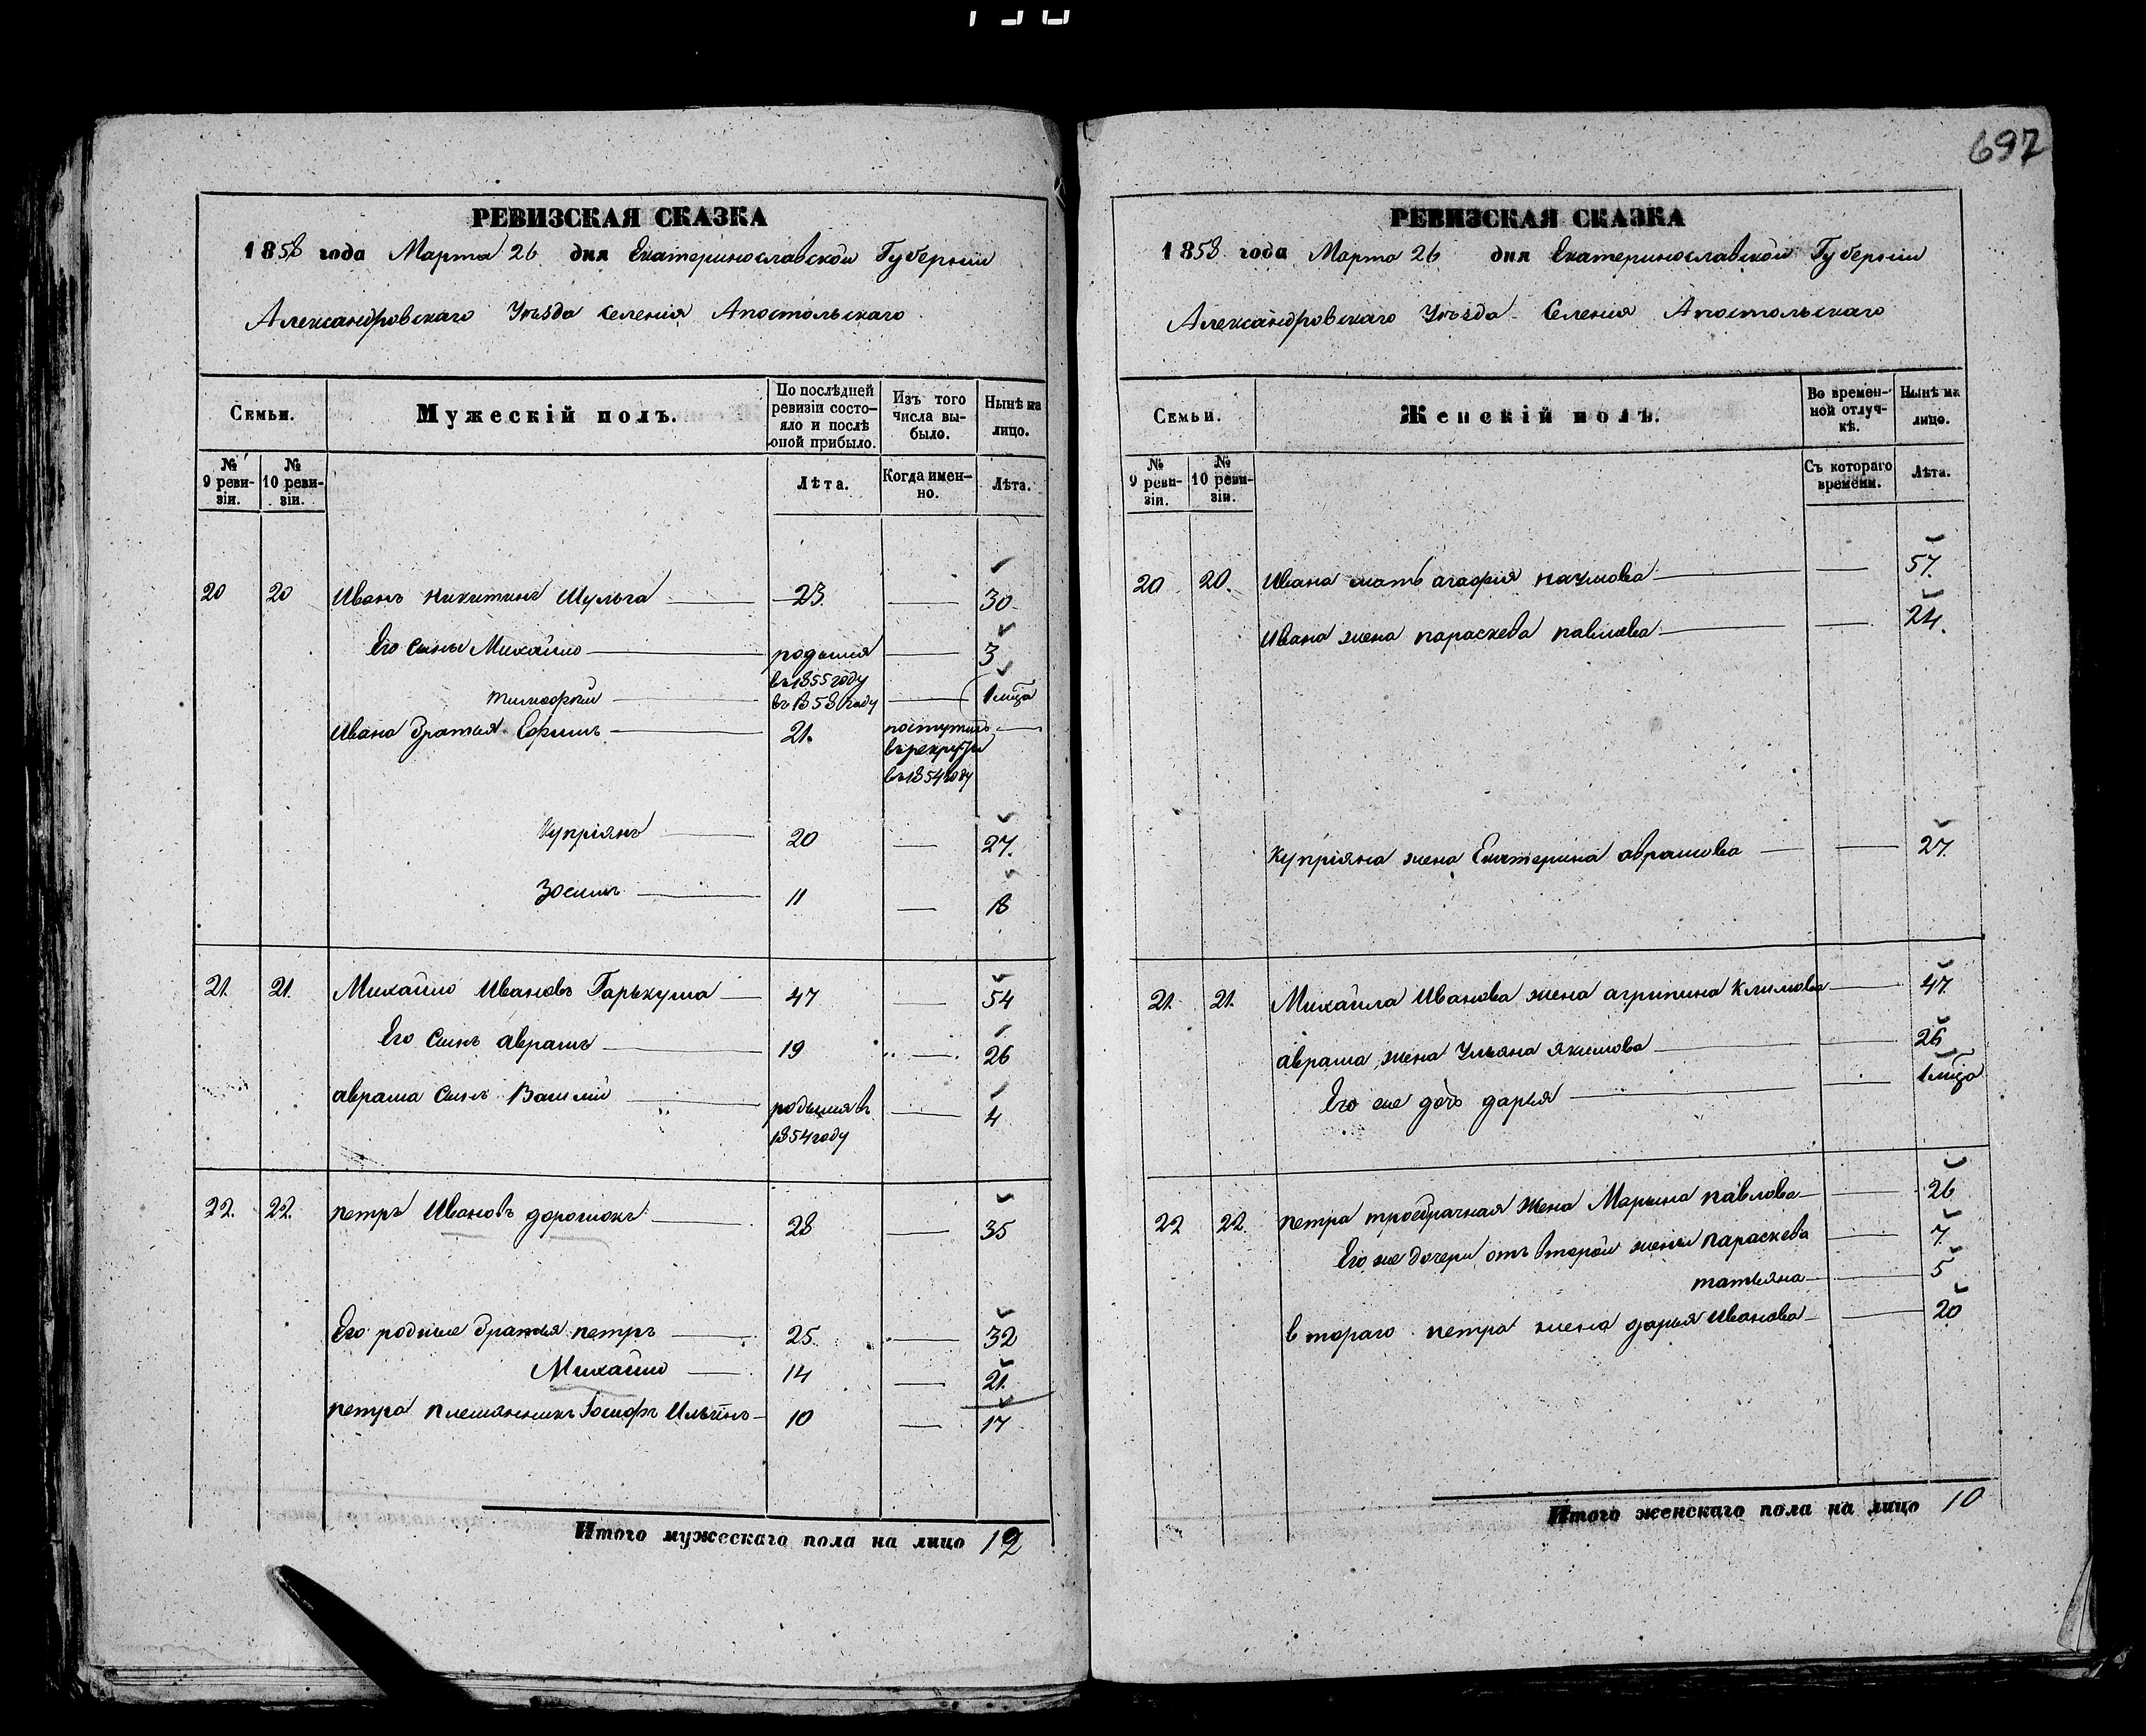 697
РЕВИЗСКАЯ СКАЗКА
1858 года Марта 26 дня Екатеринославской Губернии
Александровскаго Уѣзда Селенія Апостольскаго
Семьи.
Мужескій полъ.
По послѣдней ревизіи состо-
яло и послѣ оной прибыло.
Изъ того числа вы-
было.
Нынѣ на лицо.
№ 9 реви-
зіи.
№ 10 реви-
зіи.
Лѣта.
Когда имен-
но.
Лѣта.
20 20 Иванъ Никитинъ Шульга 23 30
Его сыны Михайло родился въ 1855 году 3
Тимофей въ 1858 году 1 м-ца
Ивана братья Ефимъ 21. поступилъ
въ рекруты
въ 1854 году
Купріянъ 20 27.
Зосимъ 11 18
21. 21. Михайло Ивановъ Гарькуша 47 54
Его сынъ аврамъ 19 26
аврама сынъ Василій родился въ 4
1854 году
22. 22. петръ Ивановъ дорошокъ 28 35
Его родные братья петръ 25 32
Михайло 14 21.
петра племянникъ Іосифъ Ильинъ 10 17
Итого мужескаго пола на лицо 12
РЕВИЗСКАЯ СКАЗКА
1858 года Марта 26 дня Екатеринославской Губернии
Александровскаго Уѣзда Селенія Апостольскаго
Семьи.
Женскій полъ.
Во времен-
ной отлуч-
кѣ.
Нынѣ на лицо.
№ 9 реви-
зіи.
№ 10 реви-
зіи.
Съ котораго времени.
Лѣта.
20 20. Ивана мать агафія 57.
Ивана жена параскева павлова 24.
купріяна жена Екатерина аврамова 27.
21. 21. Михайла Иванова жена агрипина Климова 47.
аврама жена Ульяна якимова 26
Его же дочь дарья 1 м-ца
22 22. петра троебрачная жена Марьина павлова 26
Его же дочери отъ второй жены параскева 7.
татьяна 5
втораго петра жена дарья Иванова 20
Итого женскаго пола на лицо 10